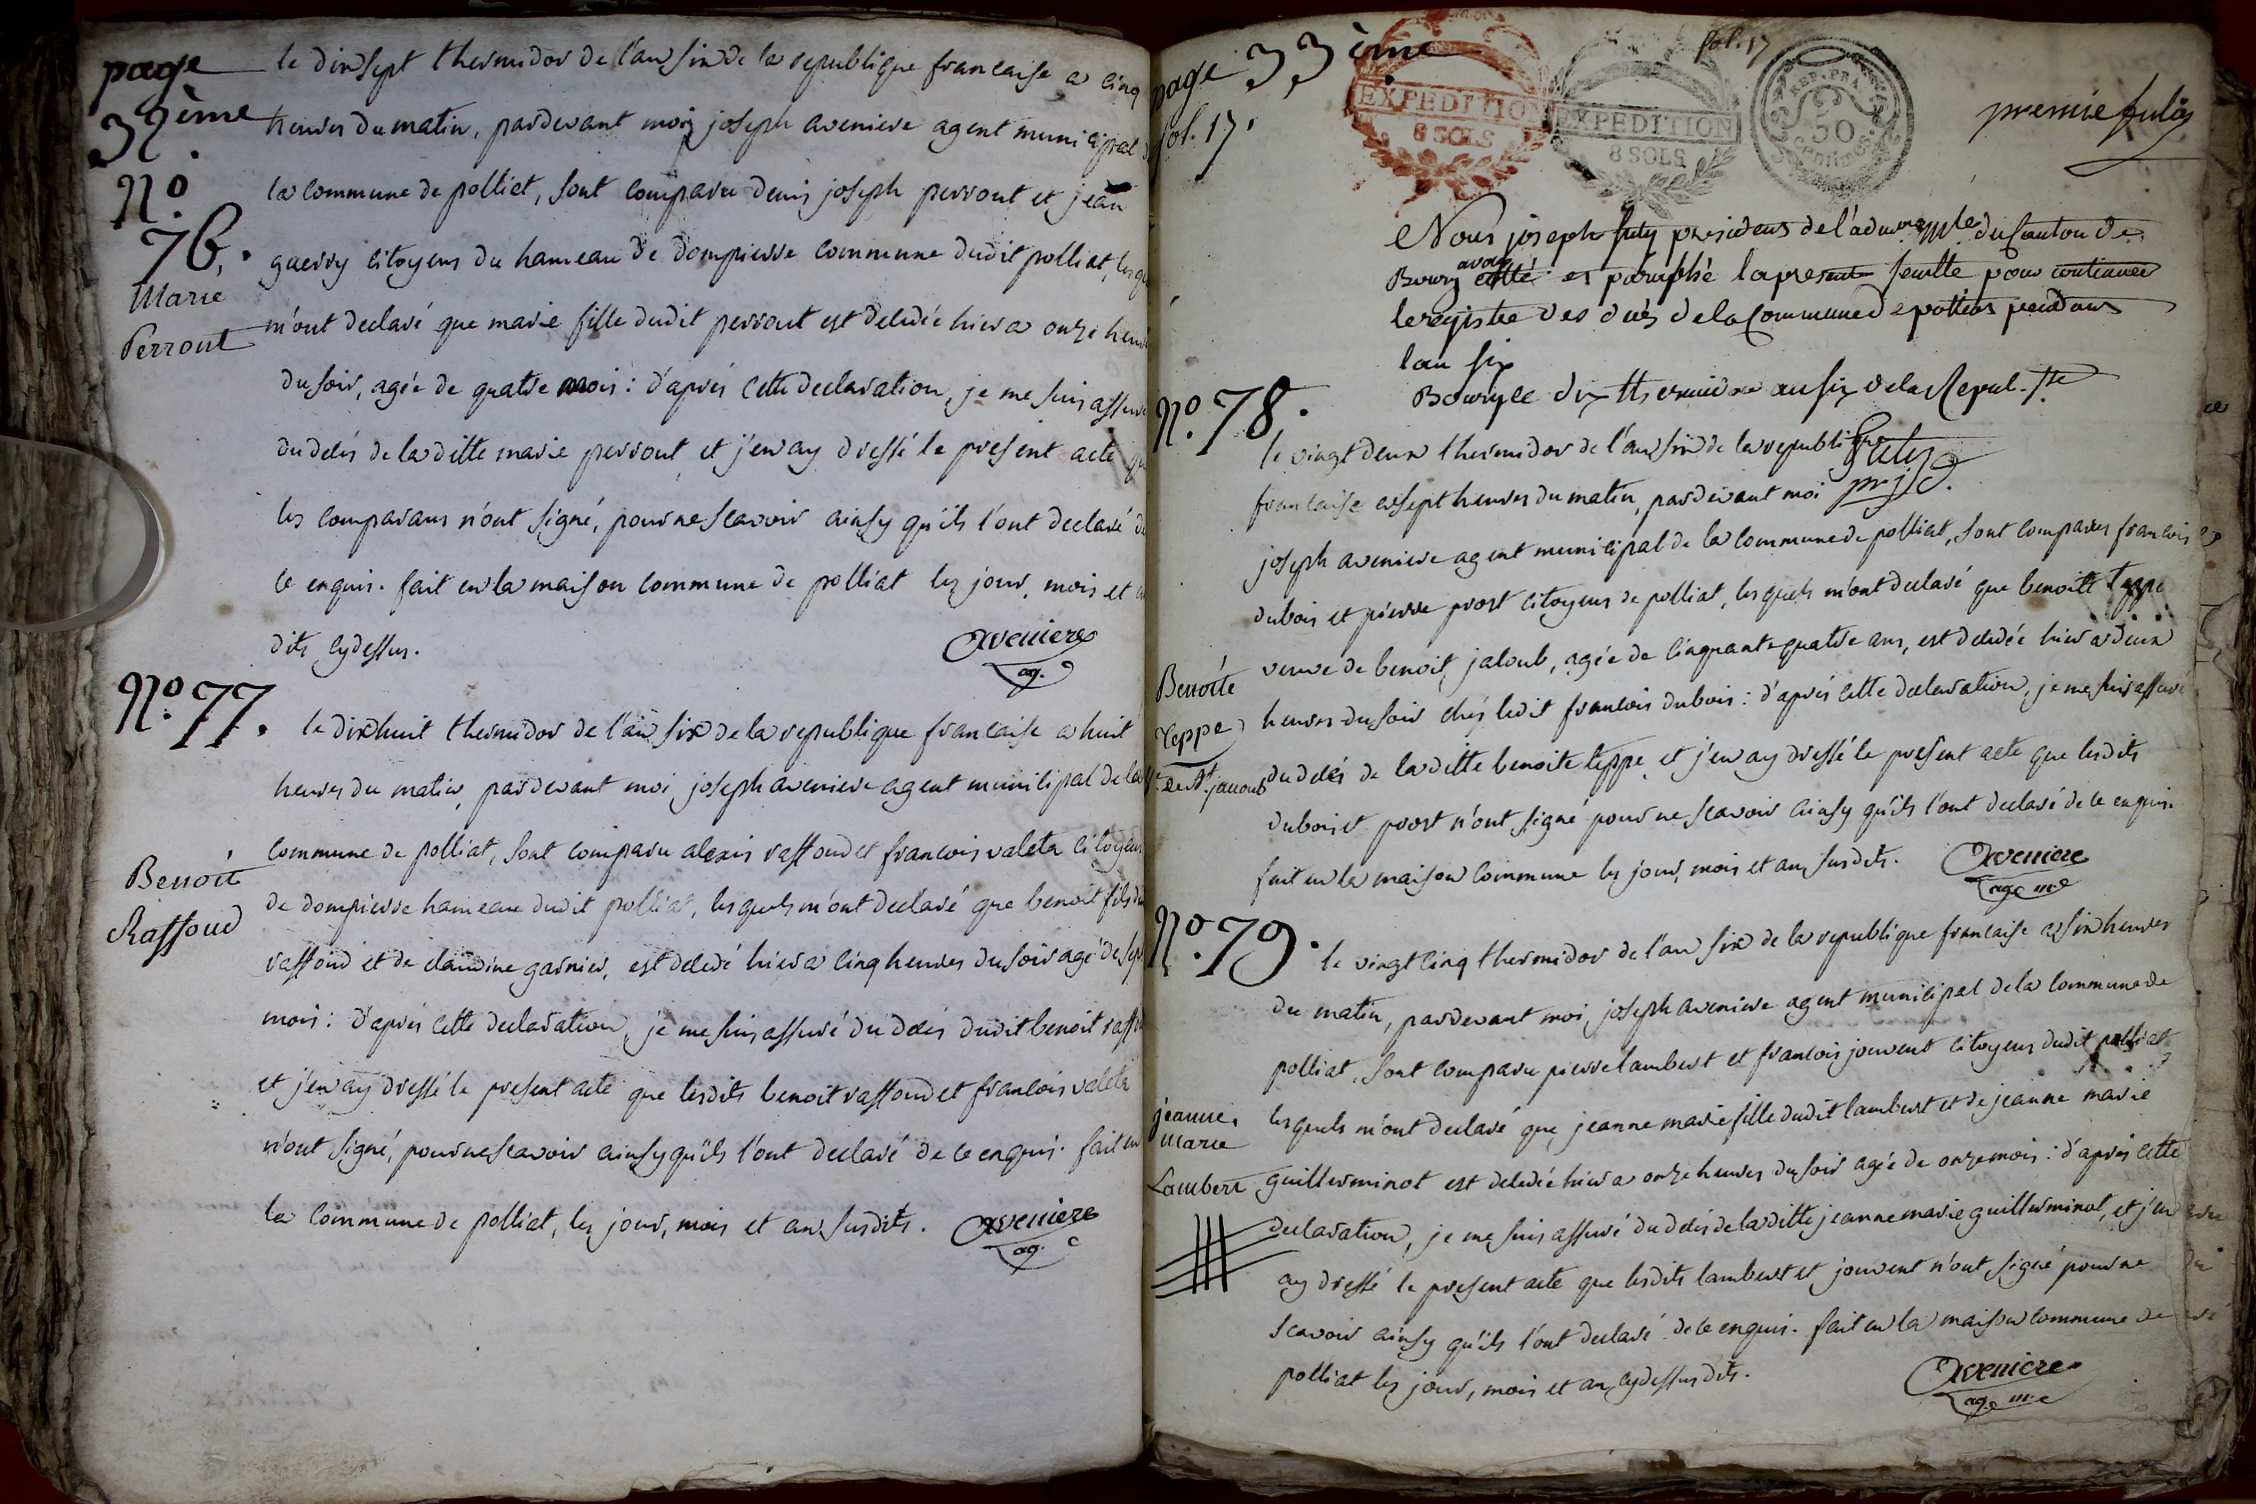 page
32ème
le dixsept thermidor de l'an six de la republique francaise a cinq
heures du matin, pardevant moi joseph aveniere agent municipal
la commune de polliat, sont comparu denis joseph perrout et jean
guerry citoyens du hameau de dompierre commune dudit polliat,
m'ont declaré que marie fille dudit perrout est decedée hier a onze
du soir, agée de quatre mois : d'aprés cette declaration, je me suis
du decés de la ditte marie perrout et j'en ay dressé le present acte
les comparans n'ont signé, pour ne scavoir ainsy qu'ils l'ont declaré
ce enquis. fait en la maison commune de polliat les jour, mois et
dits cydessus.
Aveniere
ag.
N.º
76.
Marie
Perrout
N.º 77.
le dixhuit thermidor de l'an six de la republique francaise a huit
heures du matin, pardevant moi joseph aveniere agent municipal de la
commune de polliat, sont comparu alexis raffoud et francois valeta
de dompierre hameau dudit polliat, lesquels m'ont declaré que benoit fils
raffoud et de claudine garnier, est decedé hier a cinq heures du soir agé de
mois : d'aprés cette declaration, je me suis assuré du decés dudit benoit
et j'en ay dressé le present acte que lesdits benoit raffoud et francois valeta
n'ont signé, pour ne scavoir ainsy qu'ils l'ont declaré de ce enquis. fait en
la commune de polliat, les jour, mois et an susdits.
Aveniere
ag.
Benoit
Raffoud
page 33ème
fol. 17.
fol. 17
EXPEDITION
8 SOLS
EXPEDITION
8 SOLS
REP. FRA.
50
Centimes
Nous joseph futy president de l'adm. m.le du Canton de
Bourg avons cotté et paraphé la presente feuille pour continuer
le registre des decés de la Commune de polliat pendant
l'an six
Bourg le dix thermidor an six de la Repul.
N.º 78.
le vingt deux thermidor de l'an six de la republique
francaise a sept heures du matin, pardevant moi
joseph aveniere agent municipal de la commune de polliat, sont comparus francois
dubois et pierre prost citoyens de polliat, lesquels m'ont declaré que benoite teppe
veuve de benoit jaloub, agée de cinquante quatre ans, est decedée hier a deux
heures du soir chés ledit francois dubois : d'aprés cette declaration, je me suis assuré
du decés de la ditte benoite teppe et j'en ay dressé le present acte que lesdits
dubois et prost n'ont signé pour ne scavoir ainsy qu'ils l'ont declaré de ce enquis.
fait en la maison commune les jour, mois et an susdits.
Aveniere
ag. m.
Benoite
Teppe
N.º 79.
le vingt cinq thermidor de l'an six de la republique francaise a six heures
du matin, pardevant moi joseph aveniere agent municipal de la commune de
polliat, sont comparu pierre lambert et francois jouvent citoyens dudit polliat
lesquels m'ont declaré que jeanne marie fille dudit lambert et de jeanne marie
guillerminot est decedée hier a onze heures du soir agée de onze mois : d'aprés cette
declaration, je me suis assuré du decés de la ditte jeanne marie guillerminot, et j'en
ay dressé le present acte que lesdits lambert et jouvent n'ont signé pour ne
scavoir ainsy qu'ils l'ont declaré de ce enquis. fait en la maison commune de
polliat les jour, mois et an cydessus dits.
Aveniere
ag. m.
jeanne
Marie
Lambert